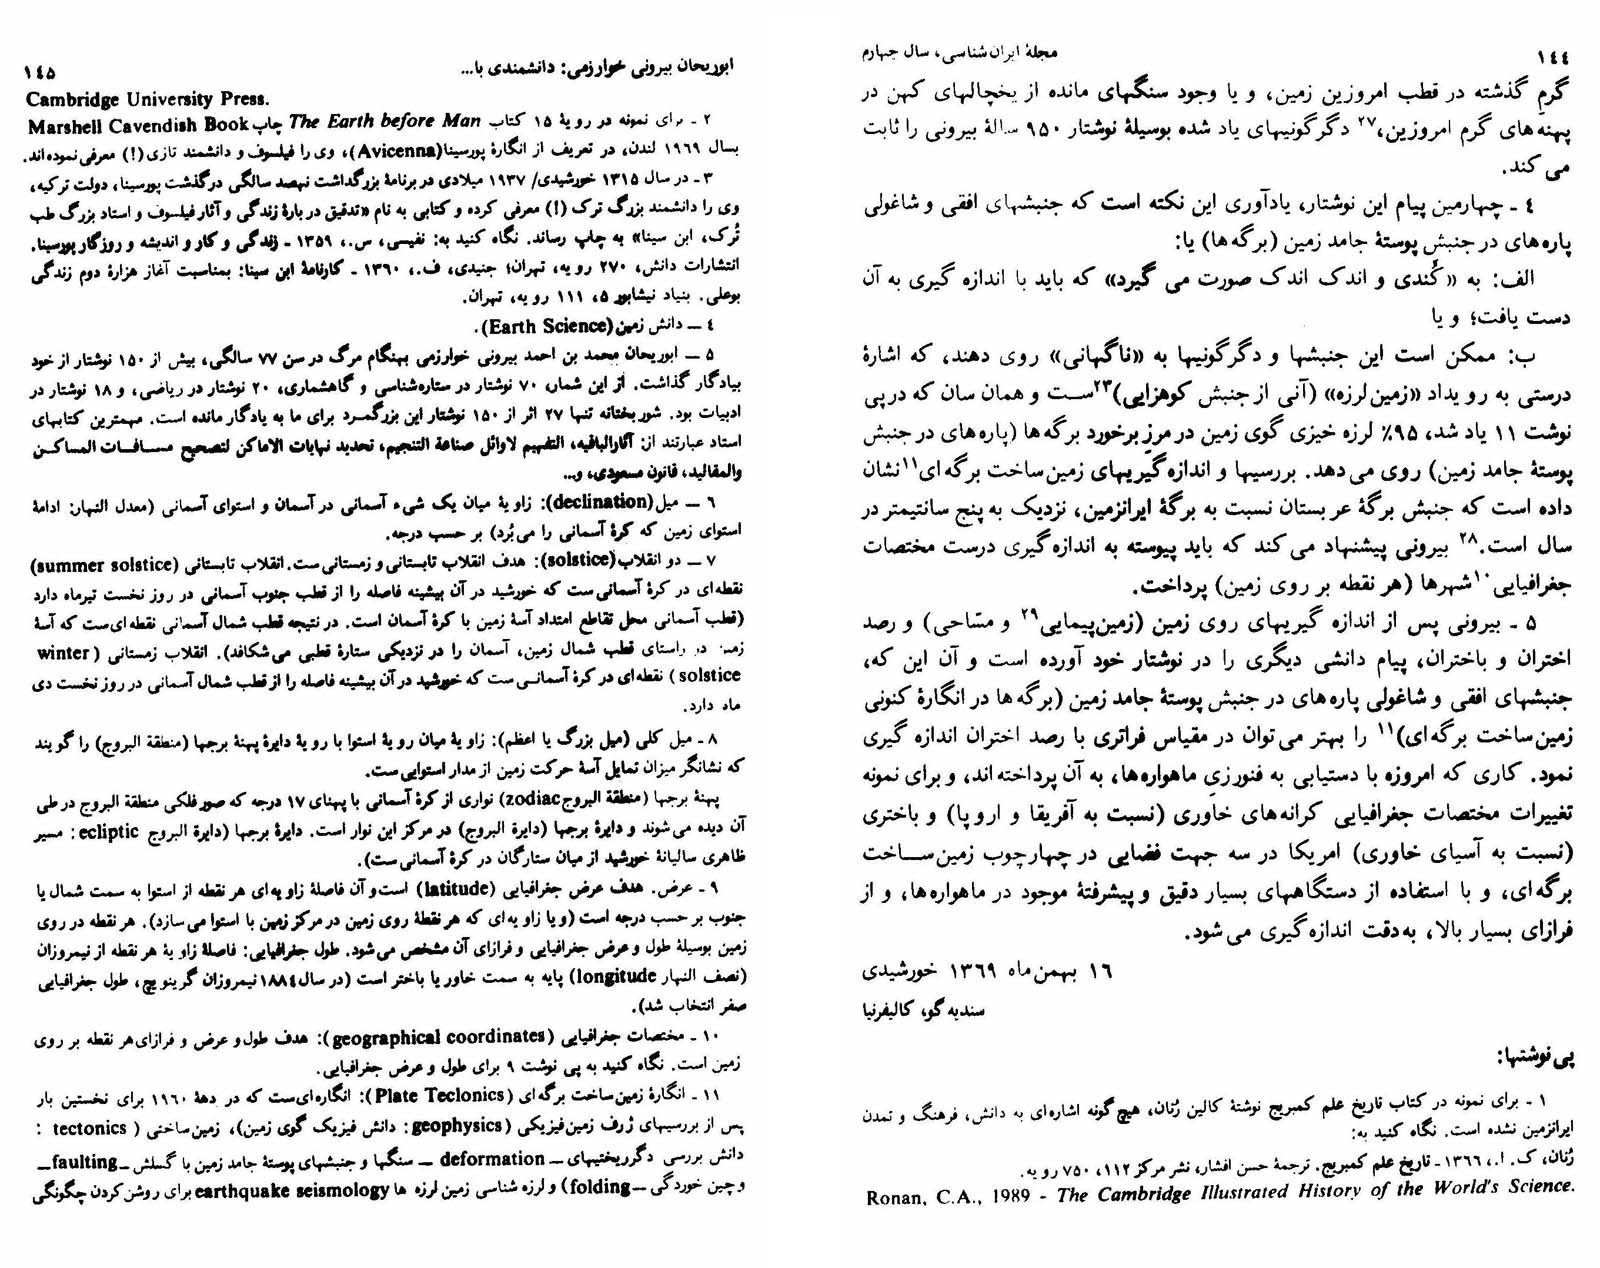 ۱٤٤
مجلهٔ ایران شناسی، سال چهارم
گرمِ گذشته در قطب امروزین زمین، و یا وجود سنگهای مانده از یخچالهای کهن در
پهنه های گرم امروزین،۲۷ دگرگونیهای یاد شده بوسیلهٔ نوشتار ۹۵۰ سالهٔ بیرونی را ثابت
می کند.
٤ ـ چهارمین پیام این نوشتار، یادآوری این نکته است که جنبشهای افقی و شاغولی
پاره های در جنبش پوستهٔ جامد زمین (برگه ها) یا:
الف: به «کُندی و اندک اندک صورت می گیرد» که باید با اندازه گیری به آن
دست یافت؛ و یا
ب: ممکن است این جنبشها و دگرگونیها به «ناگهانی» روی دهند، که اشارهٔ
درستی به رو یداد «زمین لرزه» (آنی از جنبش کوهزایی)۲۳ست و همان سان که در پی
نوشت ۱۱ یاد شد، ۹۵٪ لرزه خیزی گوی زمین در مرزِ برخورد برگه ها (پاره های در جنبش
پوستهٔ جامد زمین) روی می دهد. بررسیها و اندازه گیریهای زمین ساخت برگه ای۱۱ نشان
داده است که جنبش برگهٔ عربستان نسبت به برگهٔ ایرانزمین، نزدیک به پنج سانتیمتر در
سال است.۲۸ بیرونی پیشنهاد می کند که باید پیوسته به اندازه گیری درست مختصات
جغرافیایی۱۰ شهرها (هر نقطه بر روی زمین) پرداخت.
۵ ـ بیرونی پس از اندازه گیریهای روی زمین (زمین پیمایی۲۹ و مسّاحی) و رصد
اختران و باختران، پیام دانشی دیگری را در نوشتار خود آورده است و آن این که،
جنبشهای افقی و شاغولی پاره های در جنبش پوستهٔ جامد زمین (برگه ها در انگارهٔ کنونی
زمین ساخت برگه ای)۱۱ را بهتر می توان در مقیاس فراتری با رصد اختران اندازه گیری
نمود. کاری که امروزه با دستیابی به فنورزیِ ماهواره ها، به آن پرداخته اند، و برای نمونه
تغییرات مختصات جغرافیایی کرانه های خاوری (نسبت به آفریقا و اروپا) و باختری
(نسبت به آسیای خاوری) امریکا در سه جهت فضایی در چهارچوب زمین ساخت
برگه ای، و با استفاده از دستگاههای بسیار دقیق و پیشرفتهٔ موجود در ماهواره ها، و از
فرازای بسیار بالا، به دقت اندازه گیری می شود.
۱٦ بهمن ماه ۱۳٦۹ خورشیدی
سندیه گو، کالیفرنیا
پی نوشتها:
۱ ـ برای نمونه در کتاب تاریخ علم کمبریج نوشتهٔ کالین رُنان، هیچ گونه اشاره ای به دانش، فرهنگ و تمدن
ایرانزمین نشده است. نگاه کنید به:
رُنان، ک. ا.، ۱۳٦٦ ـ تاریخ علم کمبریج. ترجمهٔ حسن افشار، نشر مرکز ۱۱۲، ۷۵۰ رو یه.
Ronan, C.A., 1989 - The Cambridge Illustrated History of the World's Science.
ابوریحان بیرونی خوارزمی: دانشمندی با...
۱٤۵
Cambridge University Press.
۲ ـ برای نمونه در رویهٔ ۱۵ کتاب The Earth before Man چاپ Marshell Cavendish Book
بسال ۱۹٦۹ لندن، در تعریف از انگارهٔ پورسینا (Avicenna)، وی را فیلسوف و دانشمند تازی (!) معرفی نموده اند.
۳ ـ در سال ۱۳۱۵ خورشیدی/ ۱۹۳۷ میلادی در برنامهٔ بزرگداشت نهصد سالگی درگذشت پورسینا، دولت ترکیه،
وی را دانشمند بزرگ ترک (!) معرفی کرده و کتابی به نام «تدقیق در بارهٔ زندگی و آثار فیلسوف و استاد بزرگ طب
تُرک، ابن سینا» به چاپ رساند. نگاه کنید به: نفیسی، س.، ۱۳۵۹ ـ زندگی و کار و اندیشه و روزگار پورسینا.
انتشارات دانش، ۲۷۰ رو یه، تهران؛ جنیدی، ف.، ۱۳٦۰ ـ کارنامهٔ ابن سینا: بمناسبت آغاز هزارهٔ دوم زندگی
بوعلی. بنیاد نیشابور ۵، ۱۱۱ رو یه، تهران.
٤ ــ دانش زمین (Earth Science).
۵ ــ ابوریحان محمد بن احمد بیرونی خوارزمی بهنگام مرگ در سن ۷۷ سالگی، بیش از ۱۵۰ نوشتار از خود
بیادگار گذاشت. از این شمار، ۷۰ نوشتار در ستاره شناسی و گاهشماری، ۲۰ نوشتار در ریاضی، و ۱۸ نوشتار در
ادبیات بود. شوربختانه تنها ۲۷ اثر از ۱۵۰ نوشتار این بزرگمرد برای ما به یادگار مانده است. مهمترین کتابهای
استاد عبارتند از: آثارالباقیه، التفهیم لاوائل صناعة التنجیم، تحدید نهایات الاماکن لتصحیح مسافات المساکن
والمقالید، قانون مسعودی، و...
٦ ــ میل (declination): زاو یهٔ میان یک شیء آسمانی در آسمان و استوای آسمانی (معدل النهار: ادامهٔ
استوای زمین که کرهٔ آسمانی را می بُرد) بر حسب درجه.
۷ ــ دو انقلاب (solstice): هدف انقلاب تابستانی و زمستانی ست. انقلاب تابستانی (summer solstice)
نقطه ای در کرهٔ آسمانی ست که خورشید در آن بیشینه فاصله را از قطب جنوب آسمانی در روز نخست تیرماه دارد
(قطب آسمانی محل تقاطع امتداد آسهٔ زمین با کرهٔ آسمان است. در نتیجه قطب شمال آسمانی نقطه ای ست که آسهٔ
زمین در راستای قطب شمال زمین، آسمان را در نزدیکی ستارهٔ قطبی می شکافد). انقلاب زمستانی (winter
solstice) نقطه ای در کرهٔ آسمانی ست که خورشید در آن بیشینه فاصله را از قطب شمال آسمانی در روز نخست دی
ماه دارد.
۸ ـ میل کلی (میل بزرگ یا اعظم): زاو یهٔ میان رو یهٔ استوا با رو یهٔ دایرهٔ پهنهٔ برجها (منطقة البروج) را گویند
که نشانگر میزان تمایل آسهٔ حرکت زمین از مدار استوایی ست.
پهنهٔ برجها (منطقة البروج zodiac) نواری از کرهٔ آسمانی با پهنای ۱۷ درجه که صور فلکی منطقة البروج در طی
آن دیده می شوند و دایرهٔ برجها (دایرة البروج) در مرکز این نوار است. دایرهٔ برجها (دایرة البروج ecliptic: مسیر
ظاهری سالیانهٔ خورشید از میان ستارگان در کرهٔ آسمانی ست).
۹ ـ عرض. هدف عرض جغرافیایی (latitude) است و آن فاصلهٔ زاو یه ای هر نقطه از استوا به سمت شمال یا
جنوب بر حسب درجه است (و یا زاو یه ای که هر نقطهٔ روی زمین در مرکز زمین با استوا می سازد). هر نقطه در روی
زمین بوسیلهٔ طول و عرض جغرافیایی و فرازای آن مشخص می شود. طول جغرافیایی: فاصلهٔ زاو یهٔ هر نقطه از نیمروزان
(نصف النهار longitude) پایه به سمت خاور یا باختر است (در سال ۱۸۸٤ نیمروزان گرینویچ، طول جغرافیایی
صفر انتخاب شد).
۱۰ ـ مختصات جغرافیایی (geographical coordinates): هدف طول و عرض و فرازای هر نقطه بر روی
زمین است. نگاه کنید به پی نوشت ۹ برای طول و عرض جغرافیایی.
۱۱ ـ انگارهٔ زمین ساخت برگه ای (Plate Teclonics): انگاره ای ست که در دههٔ ۱۹٦۰ برای نخستین بار
پس از بررسیهای ژرف زمین فیزیکی (geophysics: دانش فیزیک گوی زمین)، زمین ساختی (tectonics:
دانش بررسی دگرریختیهای ــ deformation ــ سنگها و جنبشهای پوستهٔ جامد زمین با گسلش ــ faulting ــ
و چین خوردگی ــ folding) و لرزه شناسی زمین لرزه ها earthquake seismology برای روشن کردن چگونگی